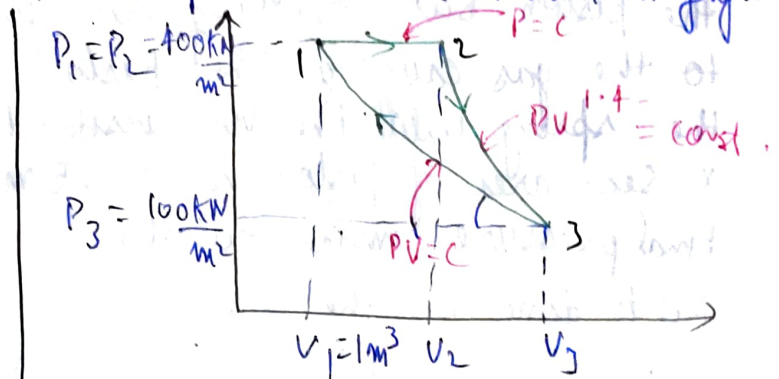 P=C
P₁=P₂=400KN/m²
1
2
PV^1.4 = const.
P₃=100KN/m²
3
PV=C
V₁=1m³ V₂ V₃